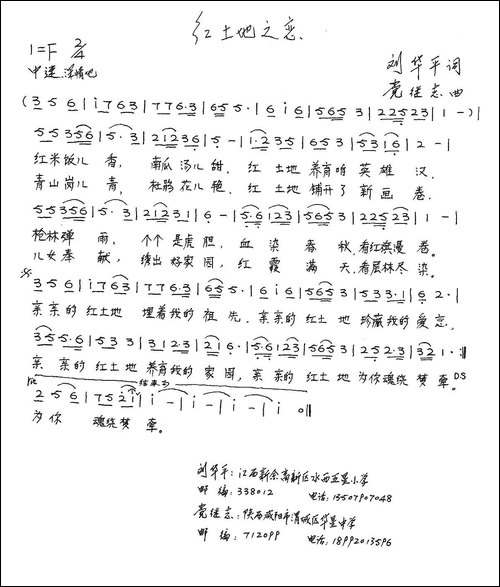 红土地之恋
1=F 2/4
中速 深情地
刘华平词
党继志曲
(3 5 6 | i 7 6 3 | 7 7 6·3 | 6 5 5· | 6 i 6 | 5 6 5 3 | 2 2 5 2 3 | 1 - ) |
5 5 3 5 6 | 5· 3 | 2 1 2 3 6 | 5 - | 1· 2 3 5 | 6 5 3 | 5 3 1 6 | 2 - |
红米饭儿 香, 南瓜汤儿 甜, 红 土地 养育咱 英 雄 汉,
青山岗儿 青, 杜鹃花儿 艳, 红 土地 铺开了 新 画 卷,
5 5 3 5 6 | 5· 3 | 2 1 2 3 1 | 6 - | 5·6 1 2 3 | 5 6 5 3 | 2 2 5 2 3 | 1 - |
枪林弹 雨, 个个是虎胆, 血 染 春 秋,看红旗漫 卷。
儿女奉 献, 绣出好家园, 红 霞 满 天,看层林尽 染。
3 5 6 | i 7 6 3 | 7 7 6 3 | 5 6 5 5· | 6 i 6 | 5 6 5 3 | 5 3 3·1 | 6 2· |
亲亲的 红土地 埋着我的 祖 先, 亲亲的 红土 地 珍藏我的 爱 恋,
3 5 5·6 | 5 3 3 | 3 1 2 3 | 2 1 6· | 5·6 1 2 3 | 5 6 5 3 | 2 5 2·3 | 3 2 1· :||
亲 亲的 红土地 养育我的 家 园, 亲 亲的 红土 地 为你魂绕 梦 牵。D.S
结束句
2 5 6 | 7 5 2 i | i - | i - | i - | i 0 ||
为 你 魂绕梦 牵。
刘华平:江西新余高新区水西五星小学
邮 编:338012 电话:13507907048
党继志:陕西咸阳市渭城区华星中学
邮 编:712099 电话:18992013596